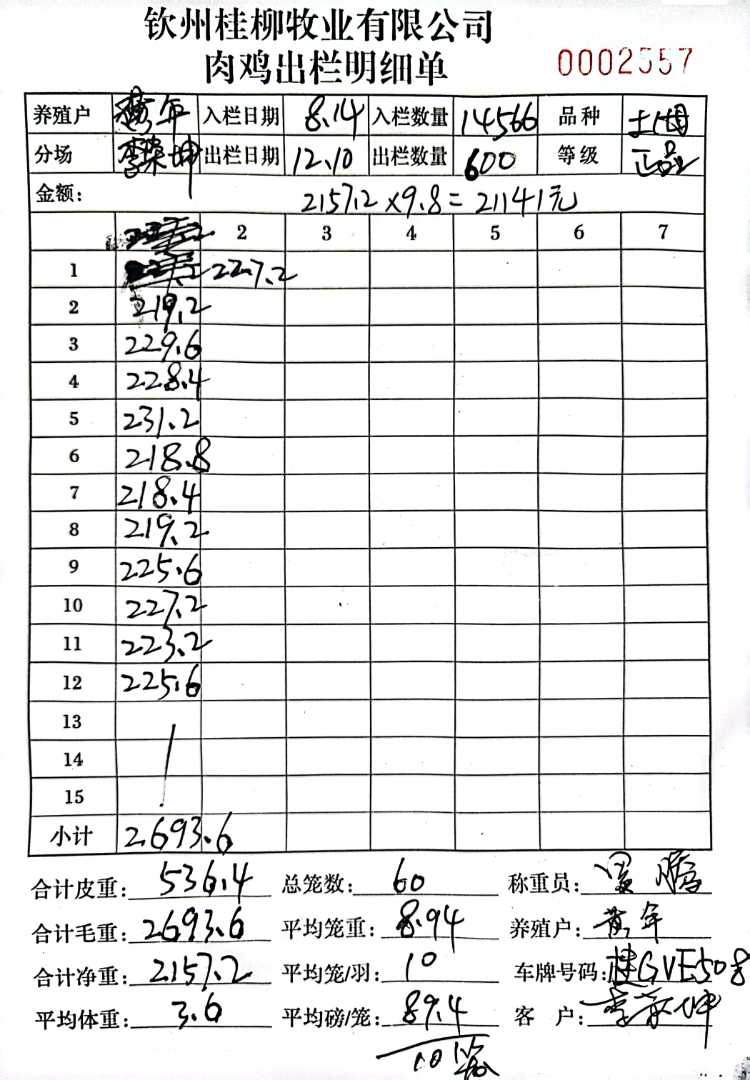 钦州桂柳牧业有限公司
肉鸡出栏明细单 0002557
养殖户 黄年 入栏日期 8.14 入栏数量 14566 品种 土2母
分场 李荣坤 出栏日期 12.10 出栏数量 600 等级 正品
金额: 2157.2×9.8=21141元
2 3 4 5 6 7
1 227.2
2 219.2
3 229.6
4 228.4
5 231.2
6 218.8
7 218.4
8 219.2
9 225.6
10 227.2
11 223.2
12 225.6
13
14
15
小计 2693.6
合计皮重: 536.4 总笼数: 60 称重员:
合计毛重: 2693.6 平均笼重: 8.94 养殖户: 黄年
合计净重: 2157.2 平均笼/羽: 10 车牌号码: 桂GVE508
平均体重: 3.6 平均磅/笼: 89.4 客 户: 李荣坤
10笼